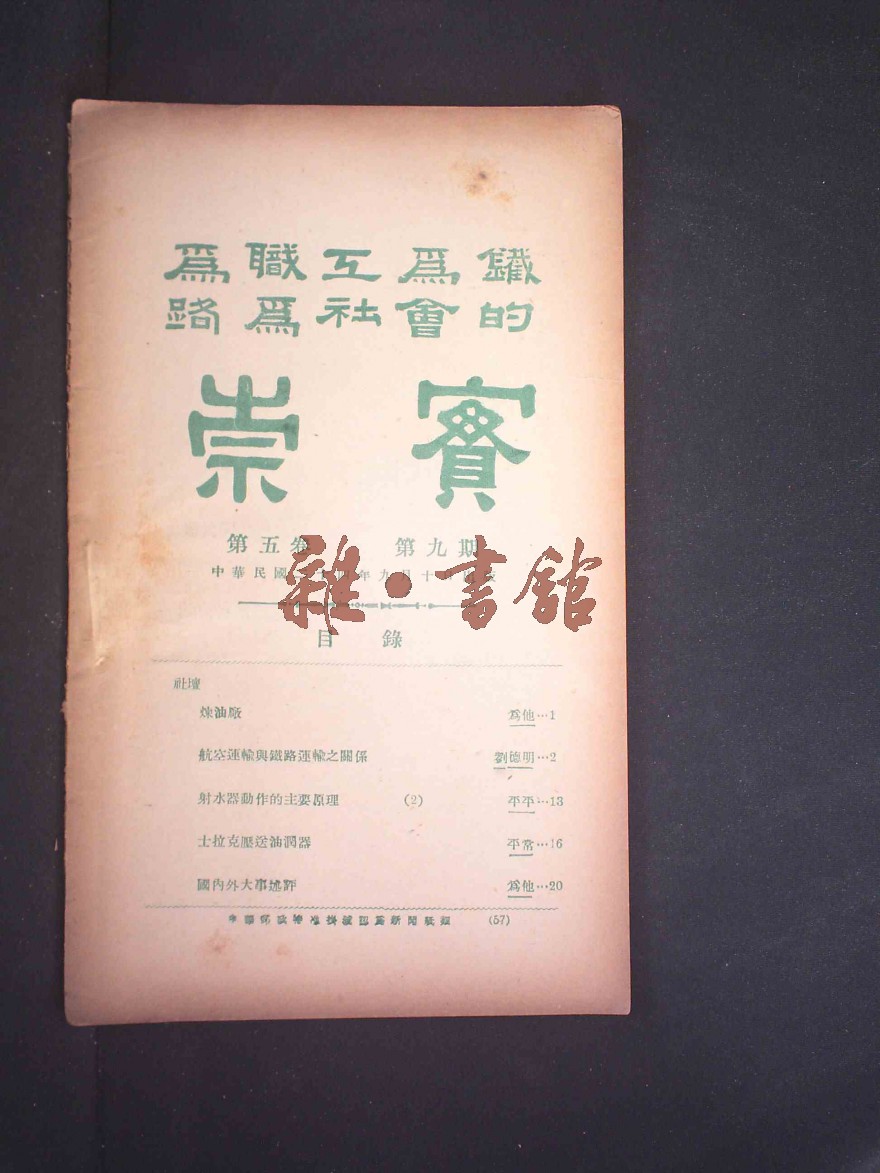 爲職工爲鐵
路爲社會的
崇實
第五卷 第九期
中華民國 年九月十
雜·書館
目錄
社壇
煉油廠 爲他…1
航空運輸與鐵路運輸之關係 劉德明…2
射水器動作的主要原理 (2) 平平…13
士拉克壓送油潤器 平常…16
國內外大事述評 爲他…20
中華郵政特准掛號認爲新聞紙類 (57)